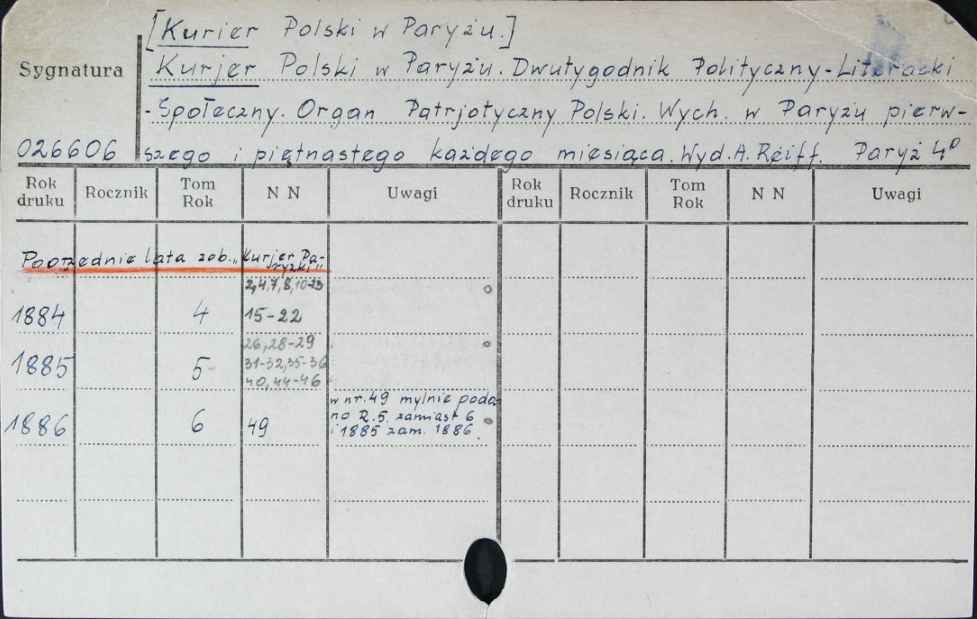 [Kurier Polski w Paryżu.]
Sygnatura
Kurjer Polski w Paryżu. Dwutygodnik Polityczny-Literacki
-Społeczny. Organ Patrjotyczny Polski. Wych. w Paryżu pierw-
026606 szego i piętnastego każdego miesiąca. Wyd. A. Reiff. Paryż 4°
Rok druku Rocznik Tom Rok N N Uwagi Rok druku Rocznik Tom Rok N N Uwagi
Poprzednie lata zob. „Kurjer Pa-
ryzki"
2,4,7,8,10-13
1884 4 15-22
26,28-29
1885 5 31-32,35-36
40,44-46
w nr. 49 mylnie poda-
no R.5 zamiast 6
1886 6 49 i 1885 zam. 1886.